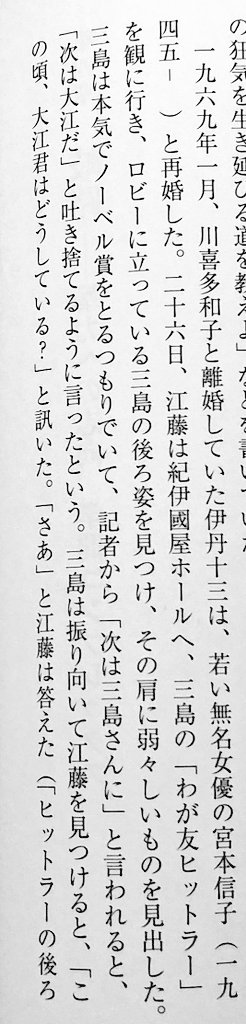 の狂気を生き延びる道を教えよ」などを書いていた
一九六九年一月、川喜多和子と離婚していた伊丹十三は、若い無名女優の宮本信子（一九
四五－　）と再婚した。二十六日、江藤は紀伊國屋ホールへ、三島の「わが友ヒットラー」
を観に行き、ロビーに立っている三島の後ろ姿を見つけ、その肩に弱々しいものを見出した。
三島は本気でノーベル賞をとるつもりでいて、記者から「次は三島さんに」と言われると、
「次は大江だ」と吐き捨てるように言ったという。三島は振り向いて江藤を見つけると、「こ
の頃、大江君はどうしている？」と訊いた。「さあ」と江藤は答えた（「ヒットラーの後ろ